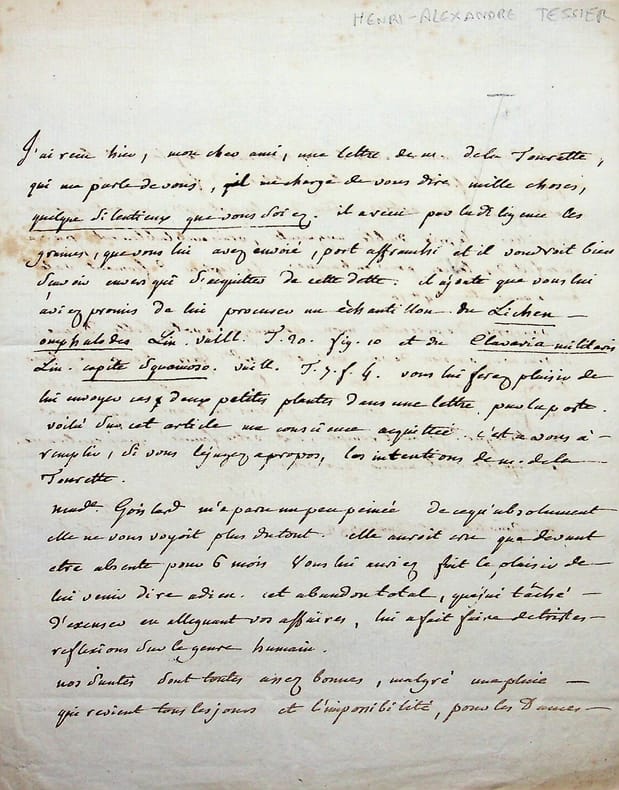 HENRI-ALEXANDRE TESSIER
J'ai reçu hier, mon cher ami, une lettre de m. de la Tourette,
qui me parle de vous, il me charge de vous dire mille choses,
quelque silentieux que vous soiez. il a reçu par la diligence les
graines, que vous lui avez envoié, port affranchi et il voudroit bien
savoir envers qui s'acquitter de cette dette. il ajoute que vous lui
aviez promis de lui procurer un échantillon du Lichen –
omphalodes Lin. vaill. T. 20. fig. 10 et du Clavaria militaris
Lin. capite squamoso. vaill. T. 7. f. 4. vous lui ferez plaisir de
lui envoyer ces deux petites plantes dans une lettre, par la poste.
voilà sur cet article ma conscience acquittée. c'est a vous à –
remplir, si vous le jugez apropos, les intentions de m. de la –
Tourette.
made Goislard m'a paru un peu peinée de ce qu'absolument
elle ne vous voyoit plus du tout. elle auroit cru que devant
etre absente pour 6 mois vous lui auriez fait le plaisir de –
lui venir dire adieu. cet abandon total, que j'ai tâché –
d'excuser en alleguant vos affaires, lui a fait faire de tristes –
reflexions sur le genre humain.
nos santés sont toutes assez bonnes, malgré une pluie –
qui revient tous les jours et l'impossibilité, pour les Dames –